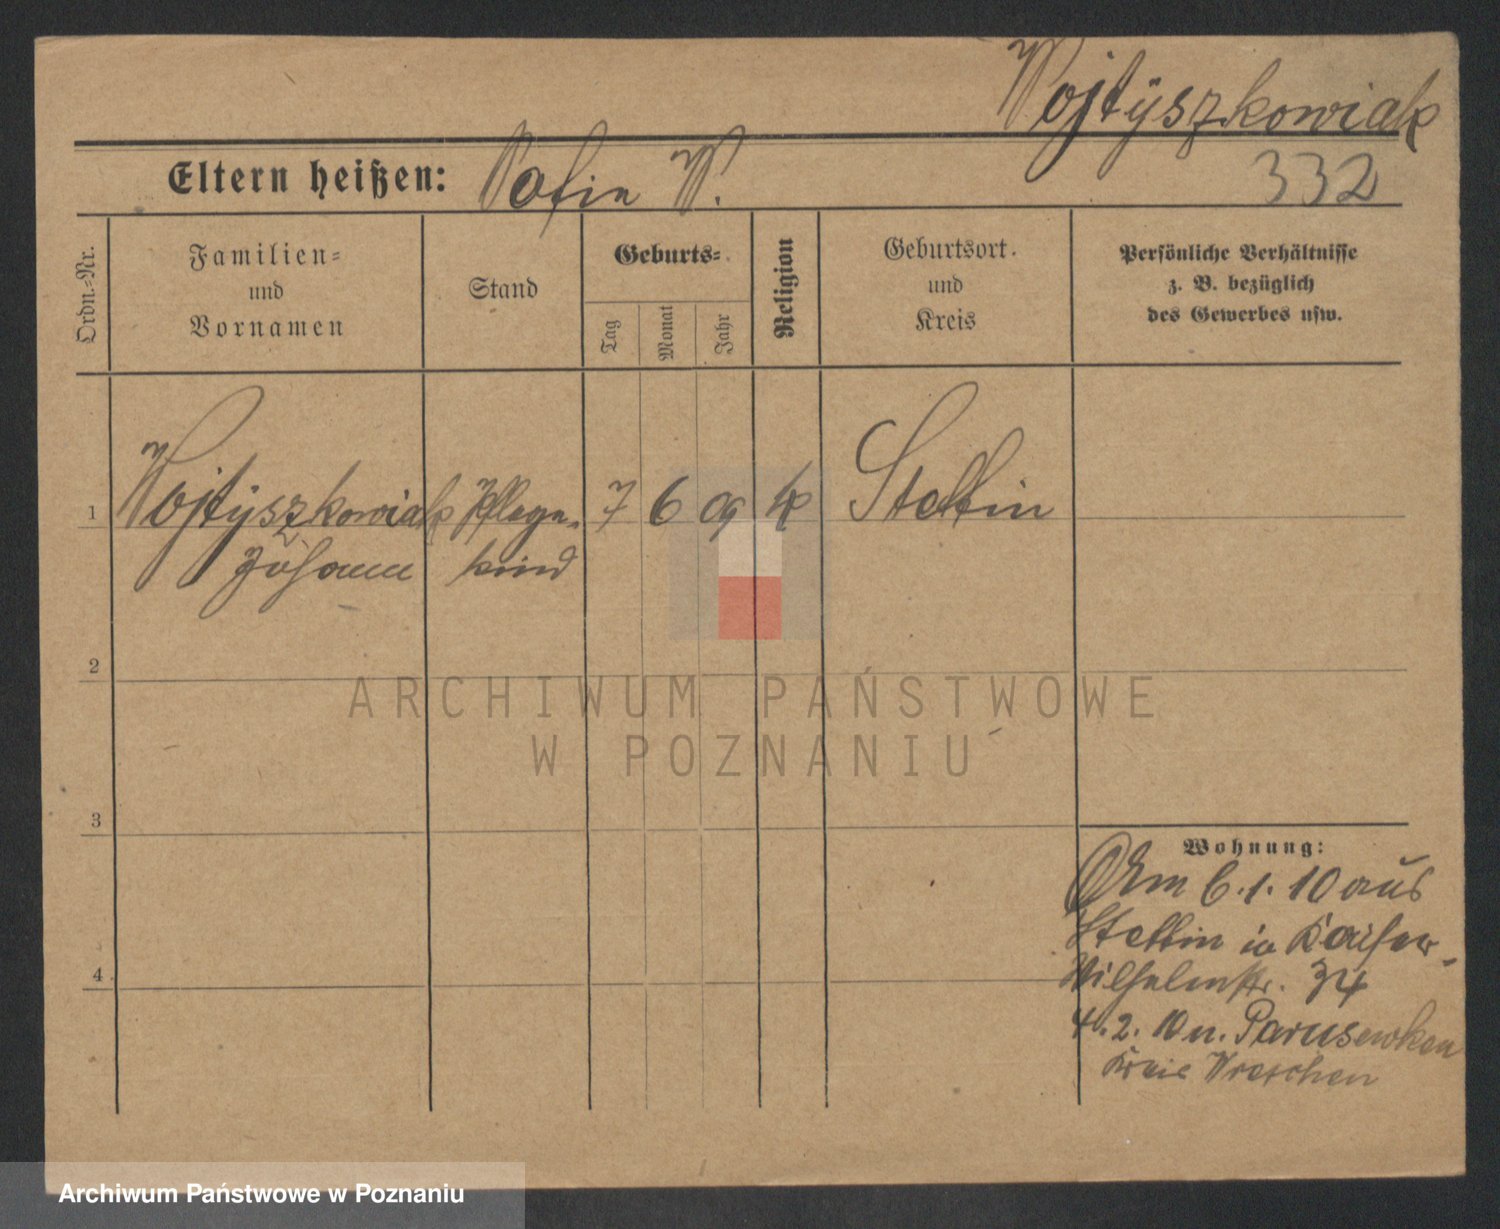 Wojtyszkowiak
Eltern heißen: Sofie W.
332
Ordn.-Nr.
Familien-
und
Vornamen
Stand
Geburts-
Tag
Monat
Jahr
Religion
Geburtsort
und
Kreis
Persönliche Verhältnisse
z. B. bezüglich
des Gewerbes usw.
1 Wojtyszkowiak Pflege- 7 6 09 k Stettin
Johann kind
2
3
4
Wohnung:
Am 6.1.10 aus
Stettin in Kaiser-
Wilhelmstr. 34
4.2.10 n. Parusewken
Kreis Wreschen
ARCHIWUM PAŃSTWOWE
W POZNANIU
Archiwum Państwowe w Poznaniu